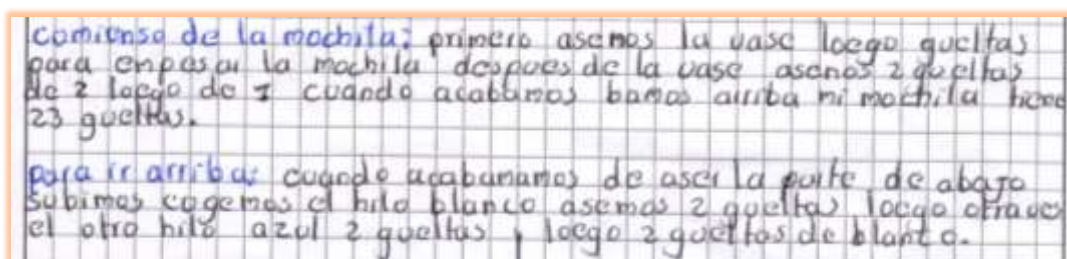 comienso de la mochila: primero asemos la vase loego gueltas
para enpesar la mochila despues de la vase asenos 2 gueltas
de 2 loego de 1 cuando acabamos bamos arriba mi mochila tiene
23 gueltas.
para ir arriba: cuando acabanamos de aser la parte de abajo
subimos cogemos el hilo blanco asemos 2 gueltas loego otraves
el otro hilo azul 2 gueltas, loego 2 gueltas de blanco.